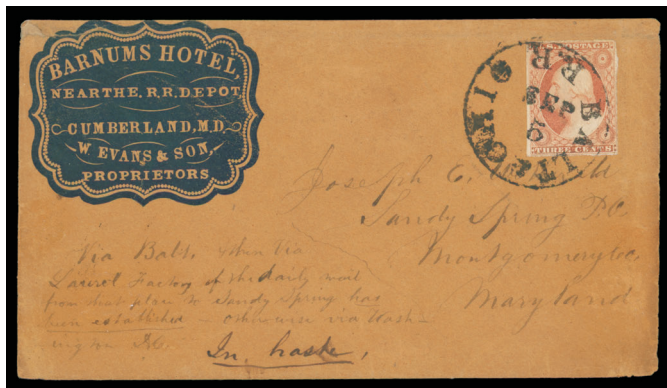 BARNUMS HOTEL,
NEAR THE, R.R. DEPOT,
CUMBERLAND, M.D.
W EVANS & SON,
PROPRIETORS
U.S. POSTAGE.
THREE CENTS.
BALTO
R.R.
SEP
Joseph E.
Sandy Spring P.O.
Montgomery Co
Maryland
Via Balt. & then Via
Laurel Factory if the daily mail
from that place to Sandy Spring has
been established — otherwise via Wash-
ington
In haste,